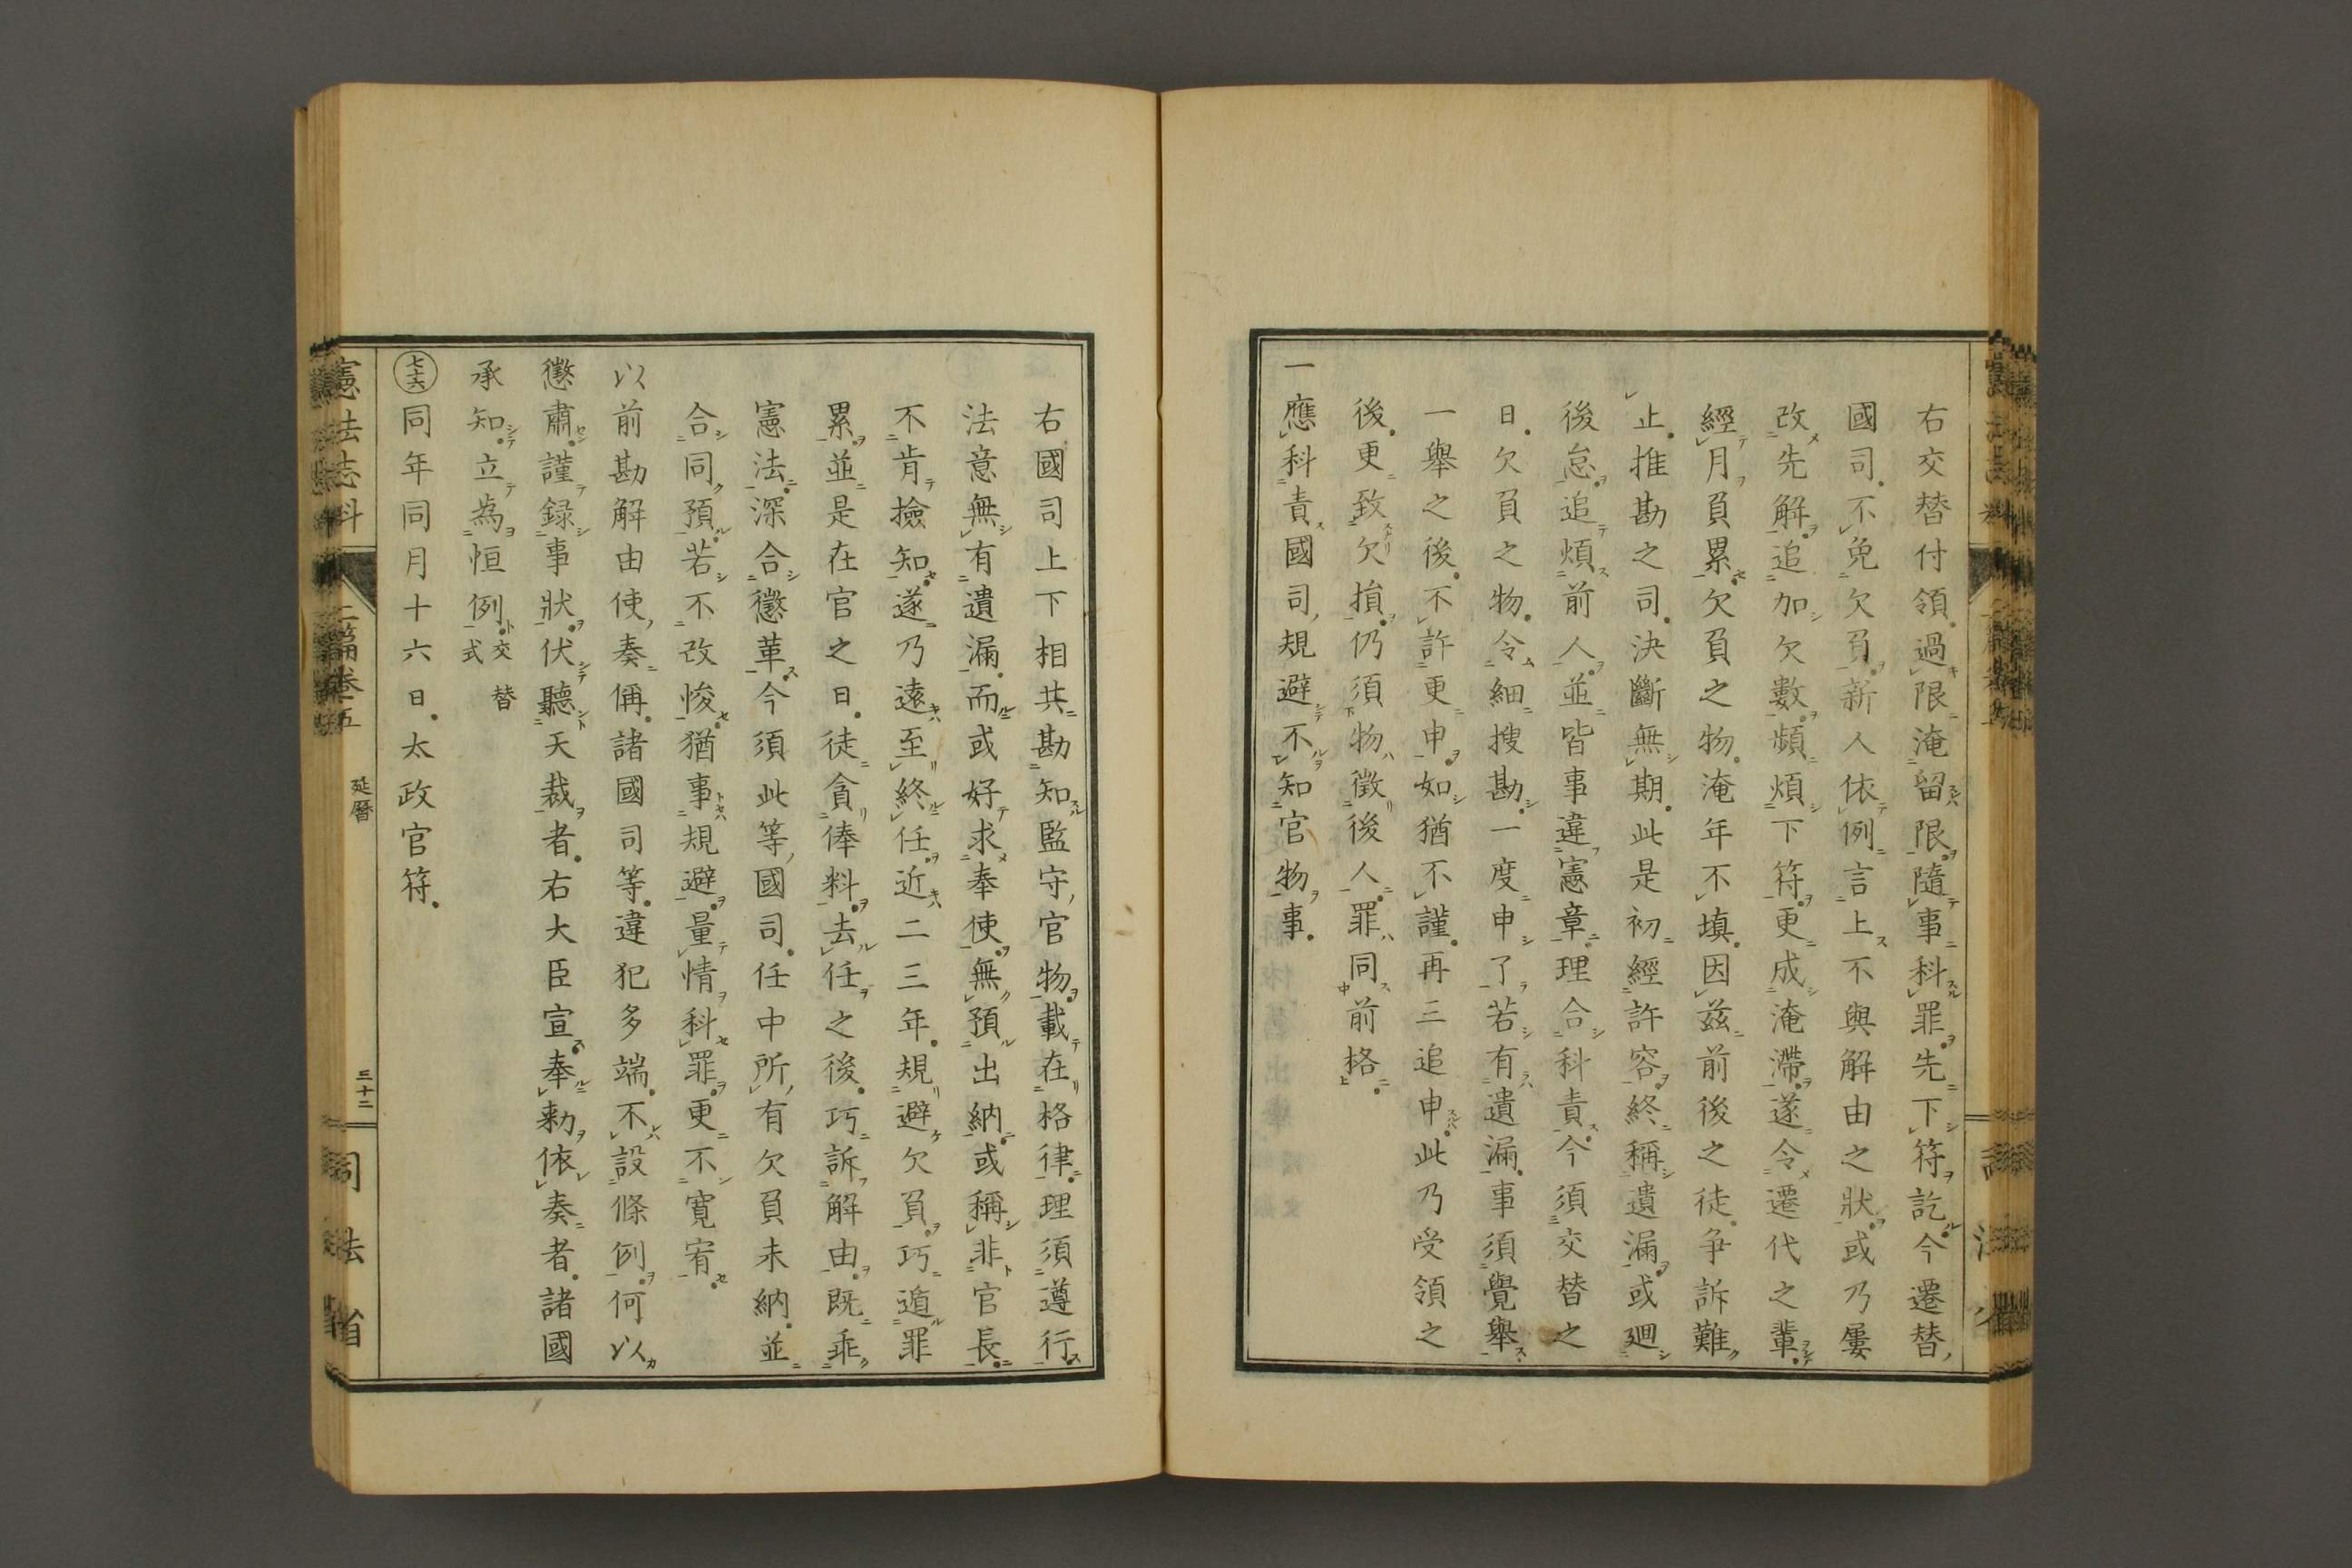 右交替付領。過限淹留限隨事科罪。先下符訖。今遷替
國司。不免欠負。新人依例言上不與解由之狀。或乃屢
改先解。追加欠數。頻煩下符。更成淹滯。遂令遷代之輩。
經月負累。欠負之物。淹年不填。因茲前後之徒。爭訴難
止。推勘之司。決斷無期。此是初經許容。終稱遺漏。或廻
後怠。追煩前人。並皆事違憲章。理合科責。今須交替之
日。欠負之物。令細搜勘。一度申了。若有遺漏。事須覺舉。
一舉之後。不許更申。如猶不謹。再三追申。此乃受領之
後。更致欠損。仍須物徵後人。罪同前格。
一應科責國司規避不知官物事。
右國司上下相共勘知監守官物。載在格律。理須遵行。
法意無有遺漏。而或好求奉使。無預出納。或稱非官長。
不肯撿知。遂乃遠至終任。近二三年。規避欠負。巧遁罪
累。並是在官之日。徒貪俸料。去任之後。巧訴解由。既乖
憲法。深合懲革。今須此等國司。任中所有欠負未納。並
合同預。若不改悛。猶事規避。量情科罪。更不寬宥。
以前勘解由使奏偁。諸國司等。違犯多端。不設條例。何以
懲肅。謹錄事狀。伏聽天裁者。右大臣宣。奉勑依奏者。諸國
承知。立為恒例。交替式
七十六 同年同月十六日。太政官符。
憲法志料 二篇卷五 延曆 三十二 司法省